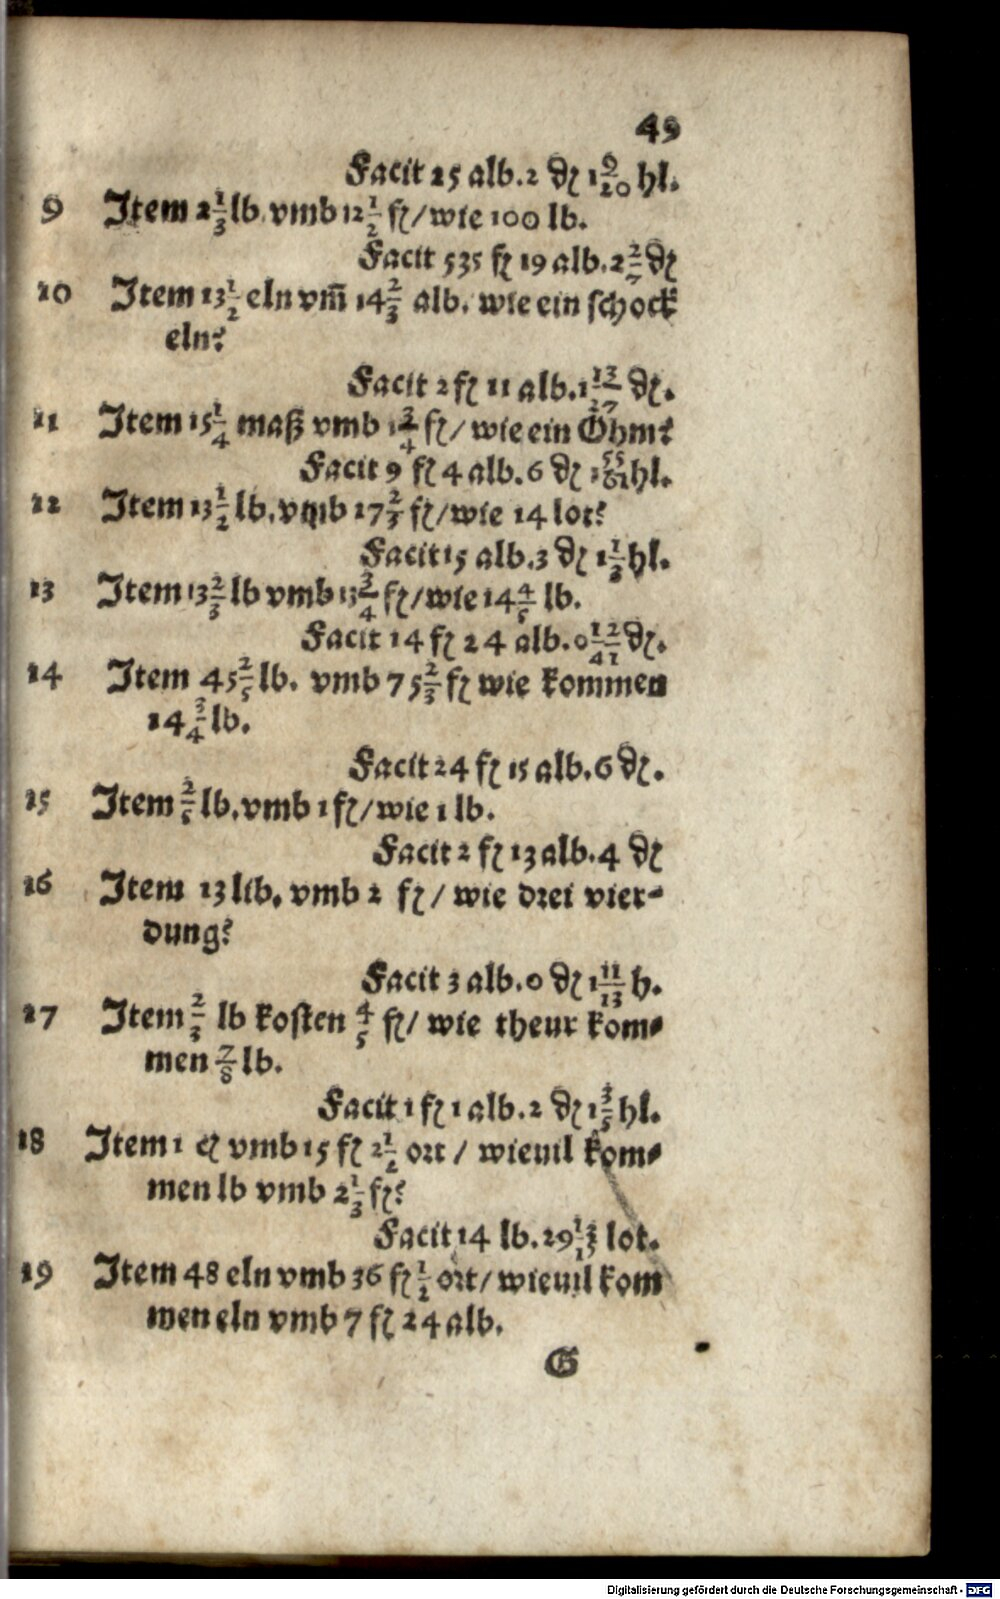 49
Facit 25 alb. 2 ₰ 1 9/20 hl.
9 Item 2 1/3 lb. vmb 12 1/2 fl/wie 100 lb.
Facit 535 fl 19 alb. 2 2/7 ₰
10 Item 13 1/2 eln vm̄ 14 2/3 alb. wie ein schock
eln?
Facit 2 fl 11 alb. 1 13/27 ₰.
11 Item 15 1/4 maß vmb 1 3/4 fl/ wie ein Ohm?
Facit 9 fl 4 alb. 6 ₰ 1 55/61 hl.
12 Item 13 1/2 lb. vmb 17 2/3 fl/wie 14 lot?
Facit 15 alb. 3 ₰ 1 1/3 hl.
13 Item 13 2/3 lb vmb 13 3/4 fl/wie 14 4/5 lb.
Facit 14 fl 24 alb. 0 12/41 ₰.
14 Item 45 2/5 lb. vmb 75 2/3 fl wie kommen
14 3/4 lb.
Facit 24 fl 15 alb. 6 ₰.
15 Item 2/5 lb. vmb 1 fl/wie 1 lb.
Facit 2 fl 13 alb. 4 ₰
16 Item 13 lib. vmb 2 fl/ wie drei vier-
dung?
Facit 3 alb. 0 ₰ 1 11/13 h.
17 Item 2/3 lb kosten 4/5 fl/ wie theur kom-
men 7/8 lb.
Facit 1 fl 1 alb. 2 ₰ 1 3/5 hl.
18 Item 1 ₵ vmb 15 fl 2 1/2 ort / wieuil kom-
men lb vmb 2 1/3 fl?
Facit 14 lb. 29 13/15 lot.
19 Item 48 eln vmb 36 fl 1/2 ort/ wieuil kom
men eln vmb 7 fl 24 alb.
G
Digitalisierung gefördert durch die Deutsche Forschungsgemeinschaft - DFG